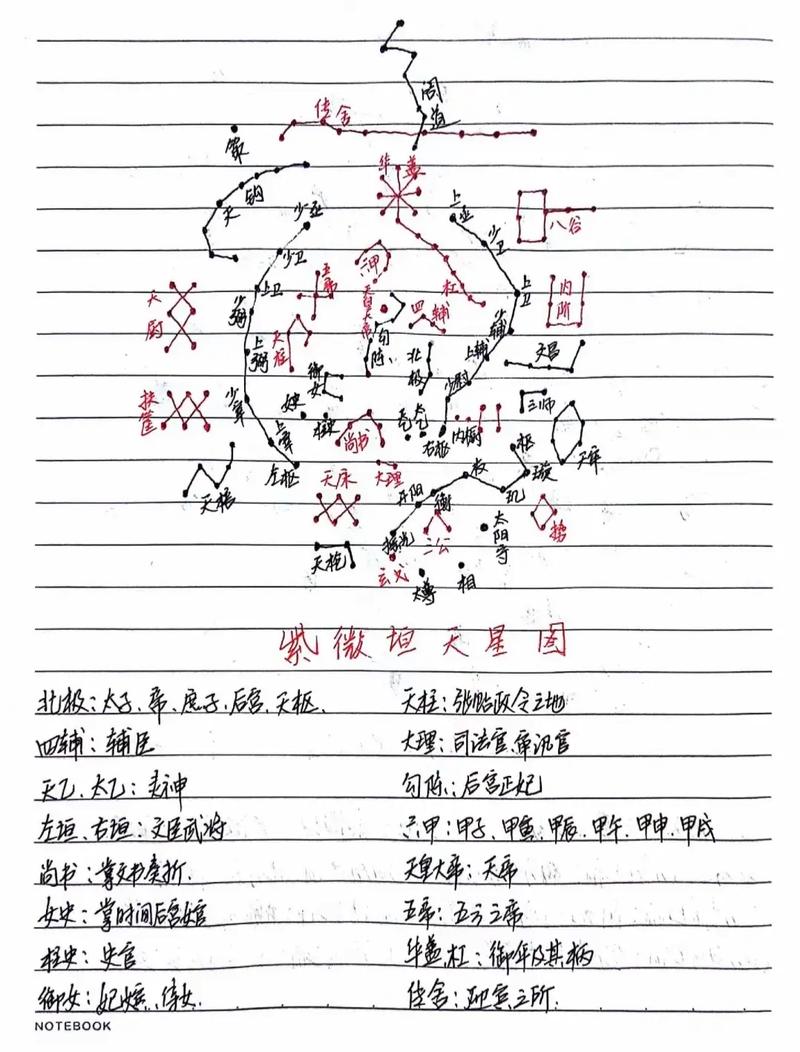 阁道
传舍
策
华盖
天钩
少丞
上丞
八谷
少卫
少卫
六甲
五帝
上卫
上卫
杠
内阶
天厨
少弼
天皇大帝
四辅
少辅
天柱
勾陈
上弼
北极
上辅
文昌
御女
少尉
扶筐
少宰
女史
柱史
尚书
天乙
太乙
右枢
内厨
三师
上宰
左枢
天床
大理
权
枢
璇
玑
天牢
天棓
开阳
衡
摇光
三公
太阳守
势
天枪
玄戈
太尊
相
紫微垣天星图
北极：太子、帝、庶子、后宫、天枢、
天柱：张贴政令之地
四辅：辅臣
大理：司法官、审讯官
天乙、太乙：灵神
勾陈：后宫正妃
左垣、右垣：文臣武将
六甲：甲子、甲寅、甲辰、甲午、甲申、甲戌
尚书：掌文书奏折、
天皇大帝：天帝
女史：掌时间后宫女官
五帝：五方之帝
柱史：史官
华盖、杠：御伞及其柄
御女：妃嫔、侍女、
传舍：迎宾之所、
NOTEBOOK